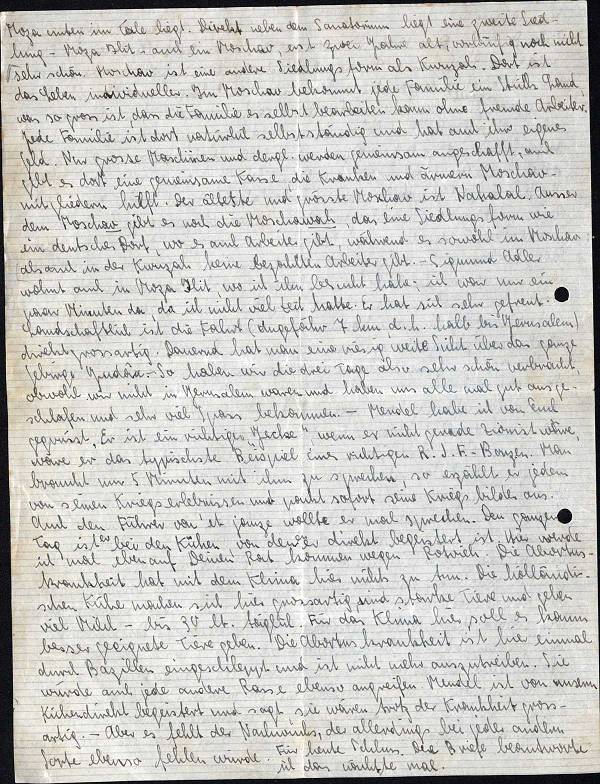 Moza unten im Tale liegt. Direkt neben dem Sanatorium liegt eine zweite Sied-
lung - Moza Ilit - auch ein Moschav erst zwei Jahre alt, vorläufig noch nicht
sehr schön. Moschav ist eine andere Siedlungsform als Kwuzah. Dort ist
das Leben individueller. Im Moschav bekommt jede Familie ein Stück Land
was so gross ist das die Familie es selbst bearbeiten kann ohne fremde Arbeiter.
Jede Familie ist dort natürlich selbstständig und hat auch ihr eigenes
Geld. Nur grosse Maschinen und dergl. werden gemeinsam angeschafft, auch
gibt es dort eine gemeinsame Kasse, die Kranken und ärmern Moschav-
mitgliedern hilft. Der älteste und grösste Moschav ist Nahalal. Ausser
dem Moschav gibt es noch die Moschawah, das eine Siedlungsform wie
ein deutsches Dorf, wo es auch Arbeiter gibt, während es sowohl im Moschav
als auch in der Kwuzah keine bezahlten Arbeiter gibt. - Sigmund Adler
wohnt auch in Moza Ilit, wo ich ihn besucht habe; ich war nur ein
paar Minuten da, da ich nicht viel Zeit hatte. Er hat sich sehr gefreut.
Landschaftlich ist die Fahrt (ungefähr 7 km d.h. halb bis Jerusalem)
direkt grossartig. Dauernd hat man eine riesig weite Sicht über das ganze
Gebirge Judäa. - So haben wir die drei Tage also sehr schön verbracht,
obwohl wir nicht in Jerusalem waren und haben uns alle mal gut ausge-
schlafen und sehr viel Spass bekommen. - Mendel habe ich von Euch
gegrüsst. Er ist ein richtiger "Jecke" wenn er nicht gerade Zionist wäre,
wäre er das typischste Beispiel eines richtigen R.J.F.-Bonzen. Man
braucht nur 5 Minuten mit ihm zu sprechen, so erzählt er jedem
von seinen Kriegserlebnissen und packt sofort seine Kriegsbilder aus.
Auch den Führer von et janze wollte er mal sprechen. Den ganzen
Tag ist er bei den Kühen, von denen er direkt begeistert ist. Hier würde
ich mal eben auf Deinen Rat kommen wegen Rotvieh. Die Abortus-
krankheit hat mit dem Klima hier nichts zu tun. Die holländi-
schen Kühe machen sich hier grossartig, sind starke Tiere und geben
viel Milch - bis 30 lt. täglich. Für das Klima hier soll es kaum
besser geeignete Tiere geben. Die Abortuskrankheit ist hier einmal
durch Bazillen eingeschleppt und ist nicht mehr auszutreiben. Sie
würde auch jede andere Rasse ebenso angreifen. Mendel ist von unsern
Kühen direkt begeistert und sagt, sie wären trotz der Krankheit gross-
artig. - Aber es fehlt der Nachwuchs, der allerdings bei jeder andern
Sorte ebenso fehlen würde. Für heute Schluss. Die Briefe beantworte
ich das nächste mal.